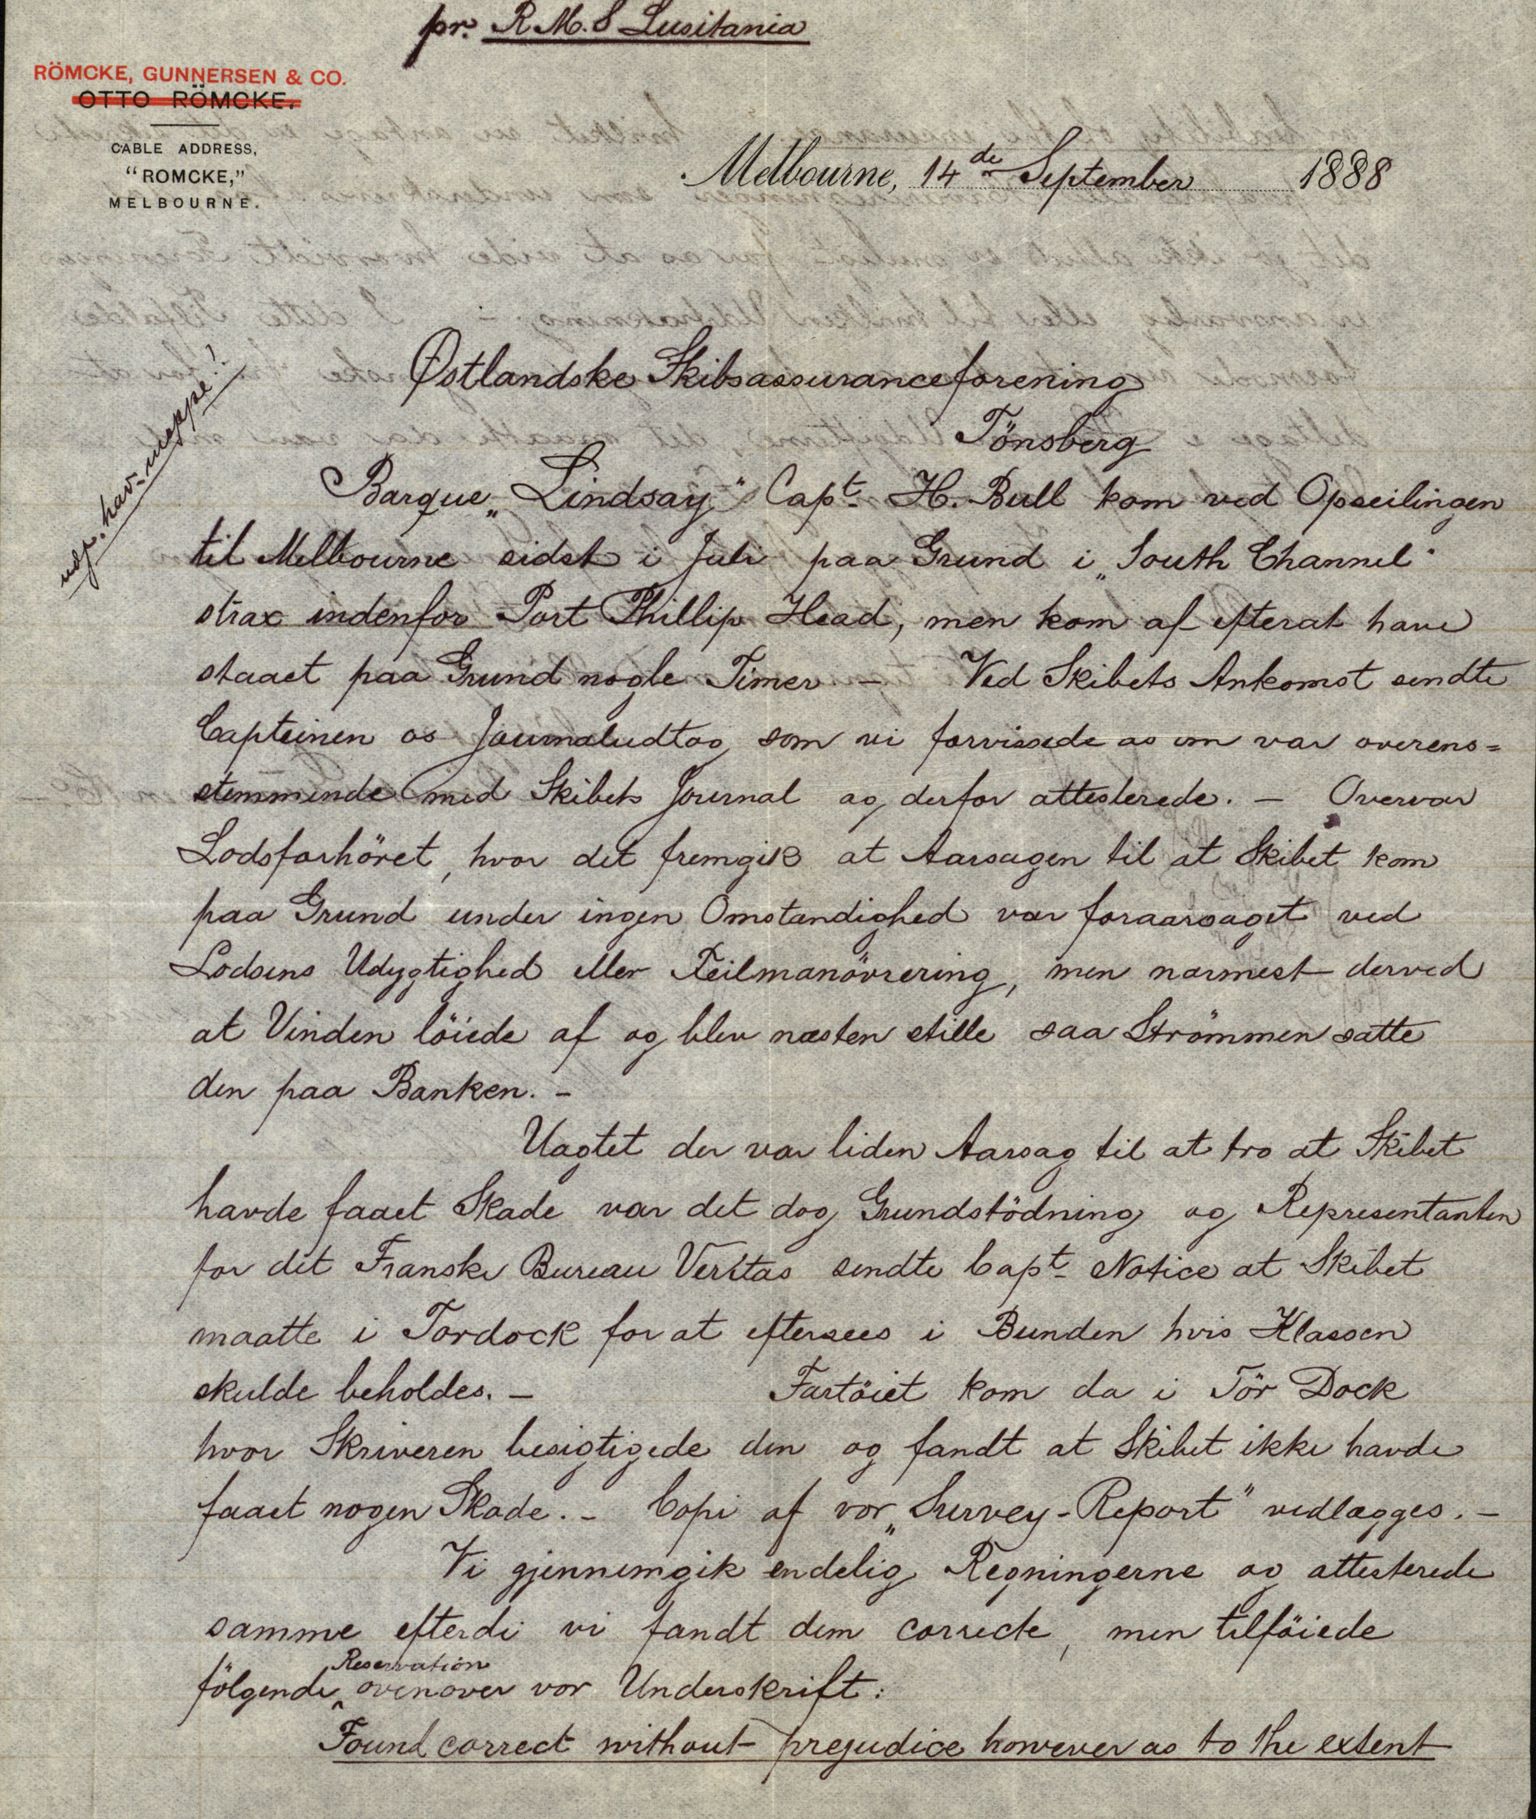 pr. R.M.S Lusitania
RÖMCKE, GUNNERSEN & CO.
OTTO RÖMCKE.
CABLE ADDRESS,
"ROMCKE,"
MELBOURNE.
Melbourne, 14de September 1888
Østlandske Skibsassuranceforening
Tönsberg
Barque „Lindsay" Capt. H. Bull kom ved Opseilingen
til Melbourne sidst i Juli paa Grund i „South Channel"
strax indenfor Port Phillip Head, men kom af efterat have
staaet paa Grund nogle Timer — Ved Skibets Ankomst sendte
Capteinen os Journaludtog som vi forvissede os om var overens=
stemmende med Skibets Journal og derfor attesterede. — Overvar
Lodsforhöret, hvor det fremgik at Aarsagen til at Skibet kom
paa Grund under ingen Omstandighed var foraarsaget ved
Lodsens Udygtighed eller Feilmanövrering, men narmest derved
at Vinden löiede af og blev næsten stille saa Strömmen satte
den paa Banken. —
Uagtet der var liden Aarsag til at tro at Skibet
havde faaet Skade var det dog Grundstödning og Representanten
for det Franske Bureau Veritas sendte Capt. Notice at Skibet
maatte i Tördock for at eftersees i Bunden hvis Klassen
skulde beholdes. — Fartöiet kom da i Tör Dock
hvor Skriveren besigtigede den og fandt at Skibet ikke havde
faaet nogen Skade. — Copi af vor „Survey-Report" vedlægges. —
Vi gjennemgik endelig Regningerne og attesterede
samme efterdi vi fandt dem correcte, men tilföiede
fölgende Reservation ovenover vor Underskrift:
Found correct without prejudice however as to the extent